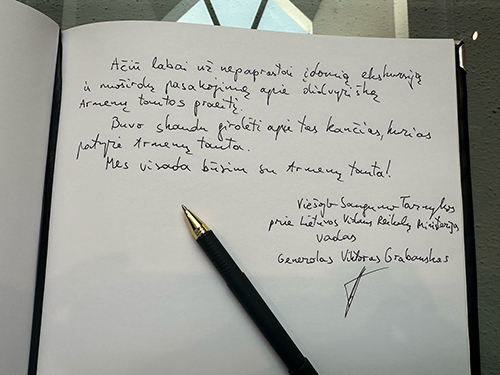 Ačiū labai už nepaprastai įdomią ekskursiją
ir nuoširdų pasakojimą apie didvyrišką
Armėnų tautos praeitį.
Buvo skaudu girdėti apie tas kančias, kurias
patyrė Armėnų tauta.
Mes visada būsim su Armėnų tauta!
Viešojo Saugumo Tarnybos
prie Lietuvos Vidaus Reikalų Ministerijos
Vadas
Generolas Viktoras Grabauskas